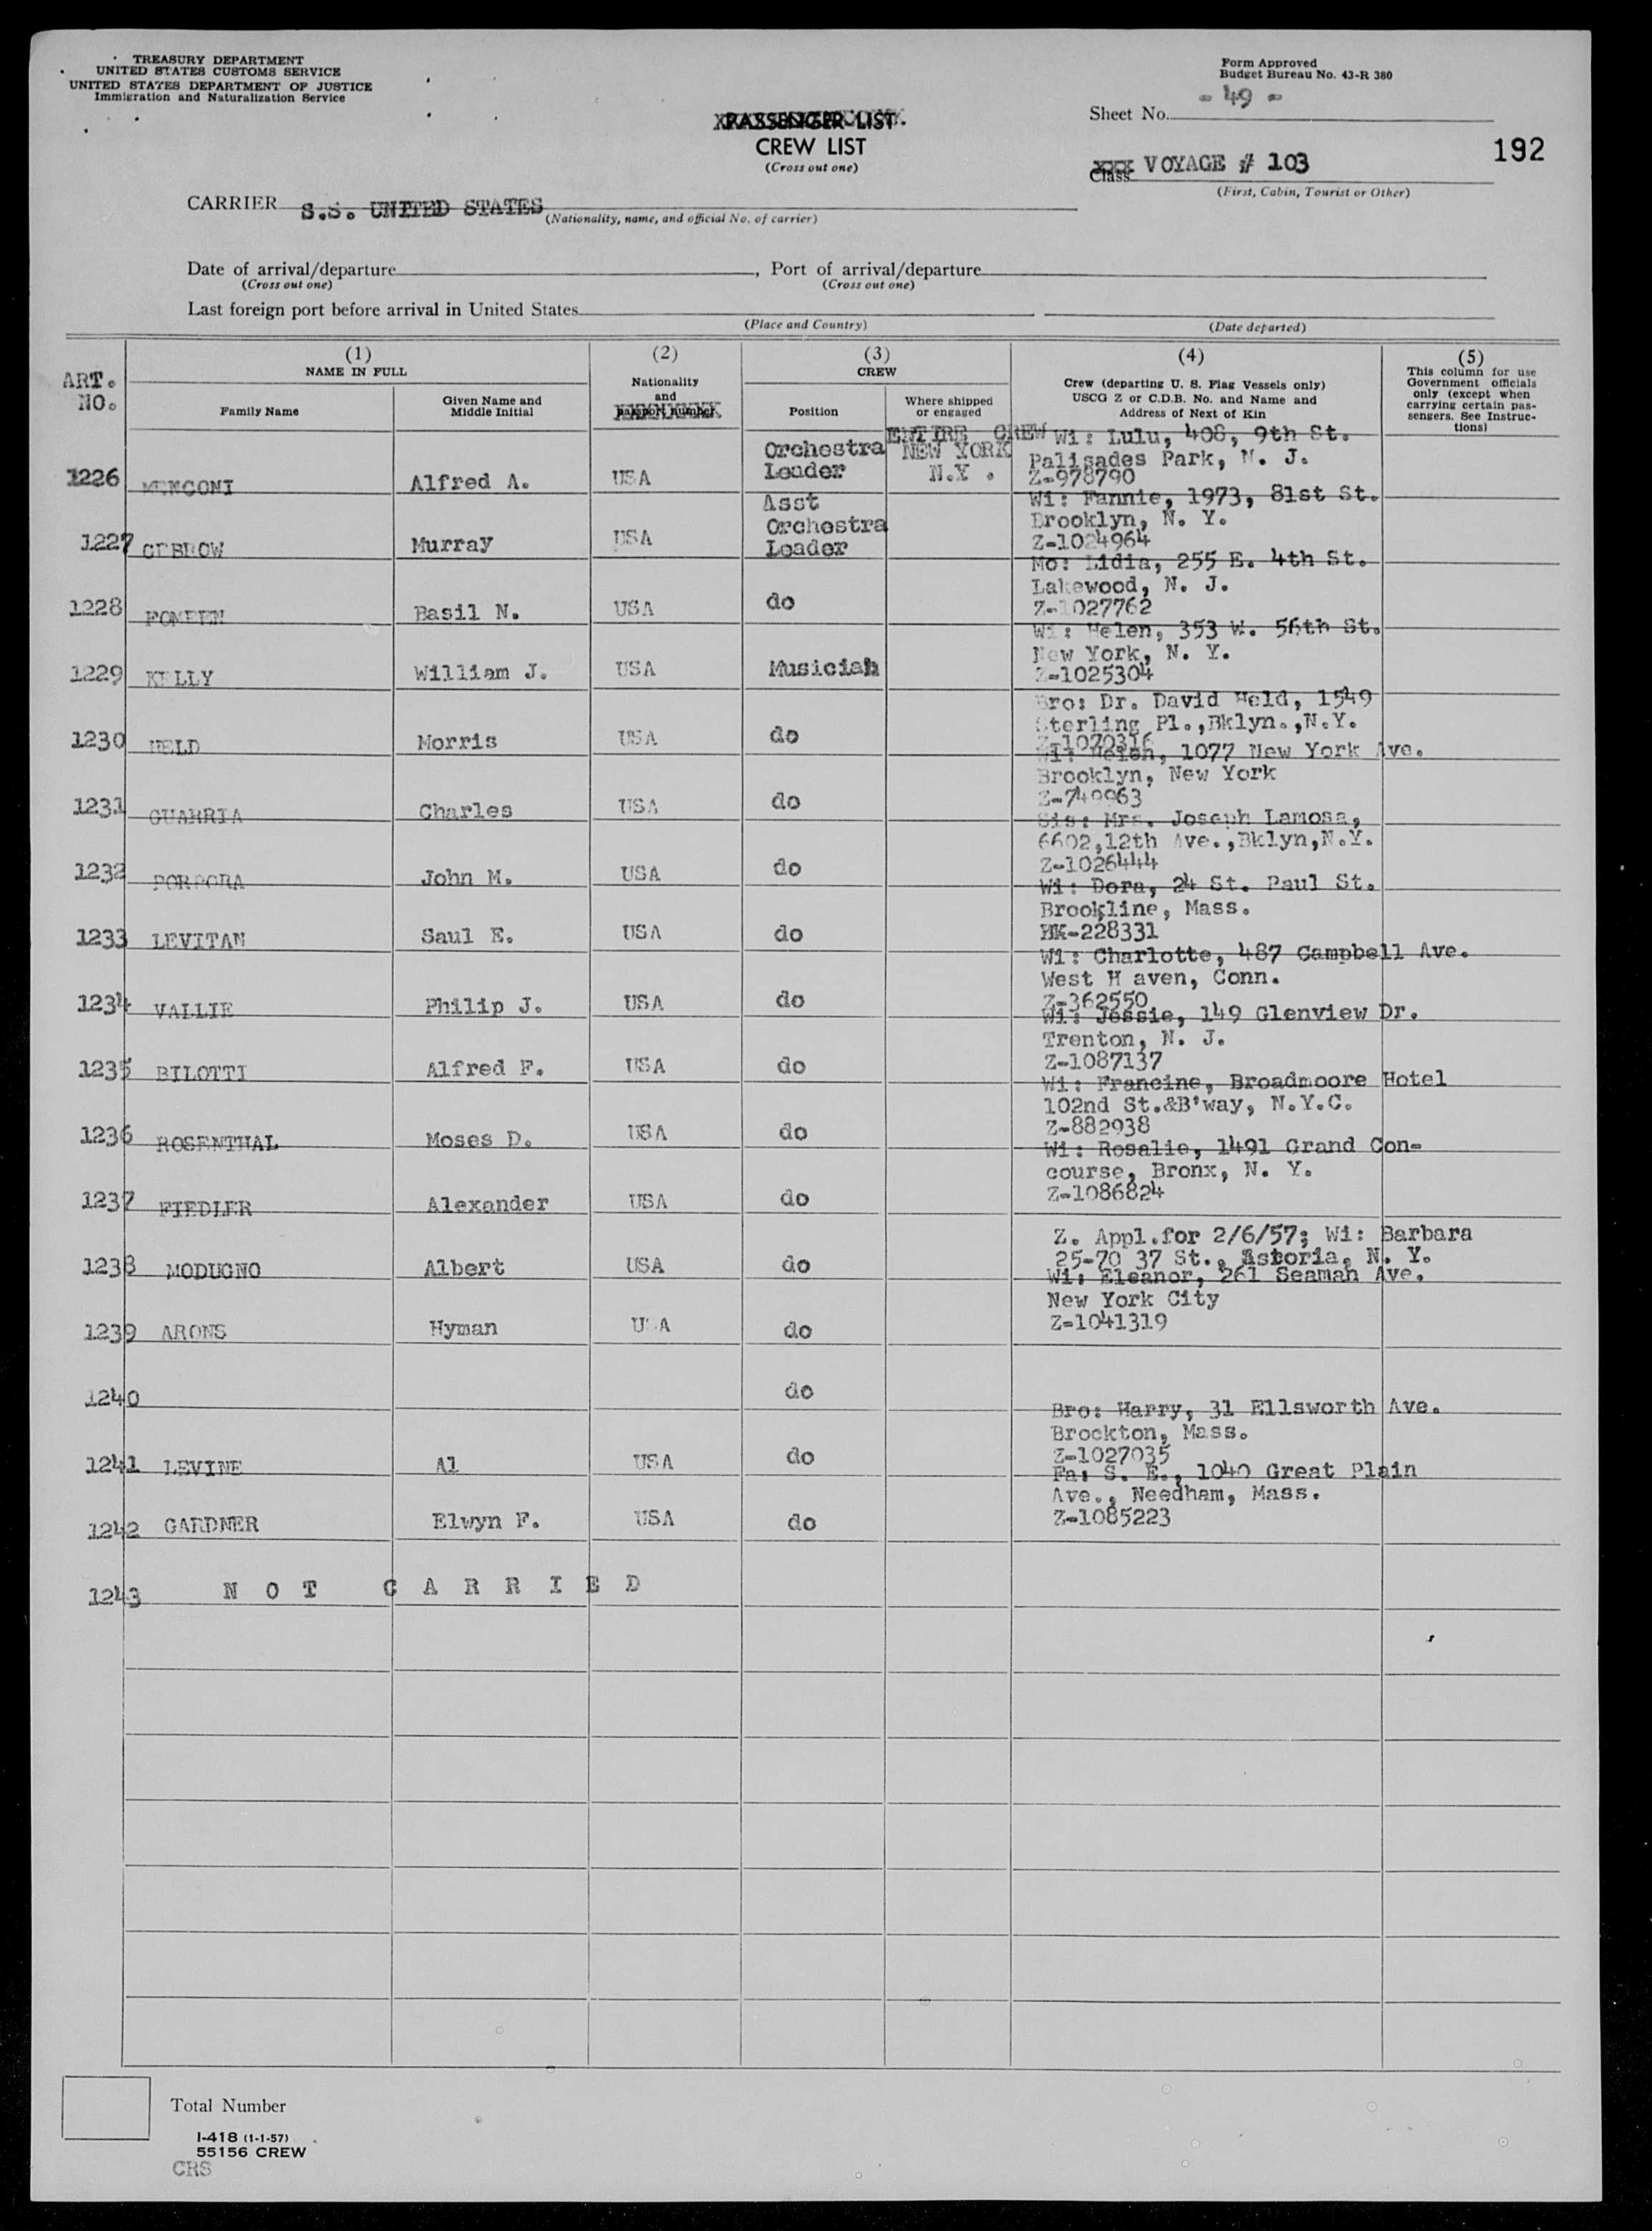 TREASURY DEPARTMENT
UNITED STATES CUSTOMS SERVICE
UNITED STATES DEPARTMENT OF JUSTICE
Immigration and Naturalization Service
Form Approved
Budget Bureau No. 43-R 380
Sheet No. - 49 -
PASSENGER LIST
CREW LIST
(Cross out one)
192
Class VOYAGE # 103
(First, Cabin, Tourist or Other)
CARRIER S.S. UNITED STATES
(Nationality, name, and official No. of carrier)
Date of arrival/departure , Port of arrival/departure
(Cross out one) (Cross out one)
Last foreign port before arrival in United States
(Place and Country) (Date departed)
ART. NO.
(1) NAME IN FULL
Family Name
Given Name and Middle Initial
(2) Nationality and passport number
(3) CREW
Position
Where shipped or engaged
(4) Crew (departing U. S. Flag Vessels only) USCG Z or C.D.B. No. and Name and Address of Next of Kin
(5) This column for use Government officials only (except when carrying certain passengers. See Instructions)
ENTIRE CREW
NEW YORK
N.Y.
1226 MENCONI Alfred A. USA Orchestra Leader Wi: Lulu, 408, 9th St.
Palisades Park, N. J.
Z-978790
1227 Murray USA Asst Orchestra Leader Wi: Fannie, 1973, 81st St.
Brooklyn, N. Y.
Z-1024964
1228 FOMEEN Basil N. USA do Mo: Lidia, 255 E. 4th St.
Lakewood, N. J.
Z-1027762
1229 KELLY William J. USA Musician Wi: Helen, 353 W. 56th St.
New York, N. Y.
Z-1025304
1230 HELD Morris USA do Bro: Dr. David Held, 1549
Sterling Pl.,Bklyn.,N.Y.
Z-1070316
1231 GUARRIA Charles USA do Wi: Helen, 1077 New York Ave.
Brooklyn, New York
Z-749963
1232 PORPORA John M. USA do Sis: Mrs. Joseph Lamosa,
6602,12th Ave.,Bklyn,N.Y.
Z-1026444
1233 LEVITAN Saul E. USA do Wi: Dora, 24 St. Paul St.
Brookline, Mass.
BK-228331
1234 VALLIE Philip J. USA do Wi: Charlotte, 487 Campbell Ave.
West H aven, Conn.
Z-362550
1235 BILOTTI Alfred F. USA do Wi: Jessie, 149 Glenview Dr.
Trenton, N. J.
Z-1087137
1236 ROSENTHAL Moses D. USA do Wi: Francine, Broadmoore Hotel
102nd St.&B'way, N.Y.C.
Z-882938
1237 FIEDLER Alexander USA do Wi: Rosalie, 1491 Grand Con-
course, Bronx, N. Y.
Z-1086824
1238 MODUGNO Albert USA do Z. Appl.for 2/6/57; Wi: Barbara
25-70 37 St., Astoria, N. Y.
1239 ARONS Hyman USA do Wi: Eleanor, 261 Seaman Ave.
New York City
Z-1041319
1240 do
1241 LEVINE Al USA do Bro: Harry, 31 Ellsworth Ave.
Brockton, Mass.
Z-1027035
1242 GARDNER Elwyn F. USA do Fa: S. E., 1040 Great Plain
Ave., Needham, Mass.
Z-1085223
1243 N O T C A R R I E D
Total Number
I-418 (1-1-57)
55156 CREW
CRS